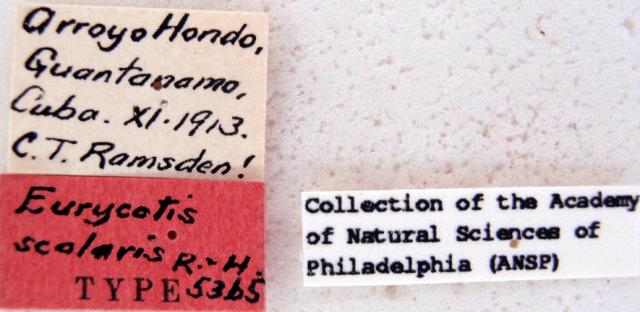 Arroyo Hondo,
Guantanamo,
Cuba. XI.1913.
C.T. Ramsden!
Eurycotis
scalaris R.-H.
TYPE 5365
Collection of the Academy
of Natural Sciences of
Philadelphia (ANSP)